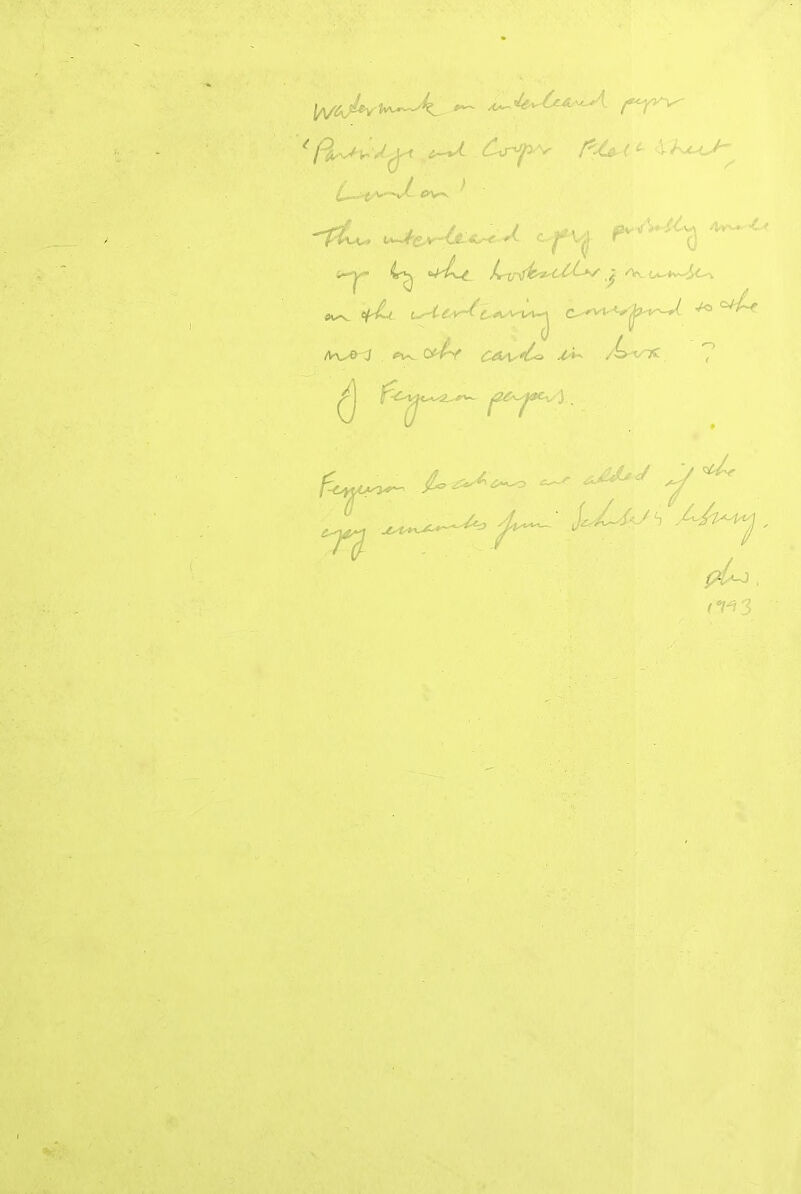 Watermark on interleaved paper
'Partridge and Cooper Fleet Street,
London'
This interleaved copy probably made
up by the bookseller; numbers
on the interleaving correspond to the
nos on the cards in box ?
of Ferguson papers.
Ferguson locations are added if the
copy emanates from library.
1993